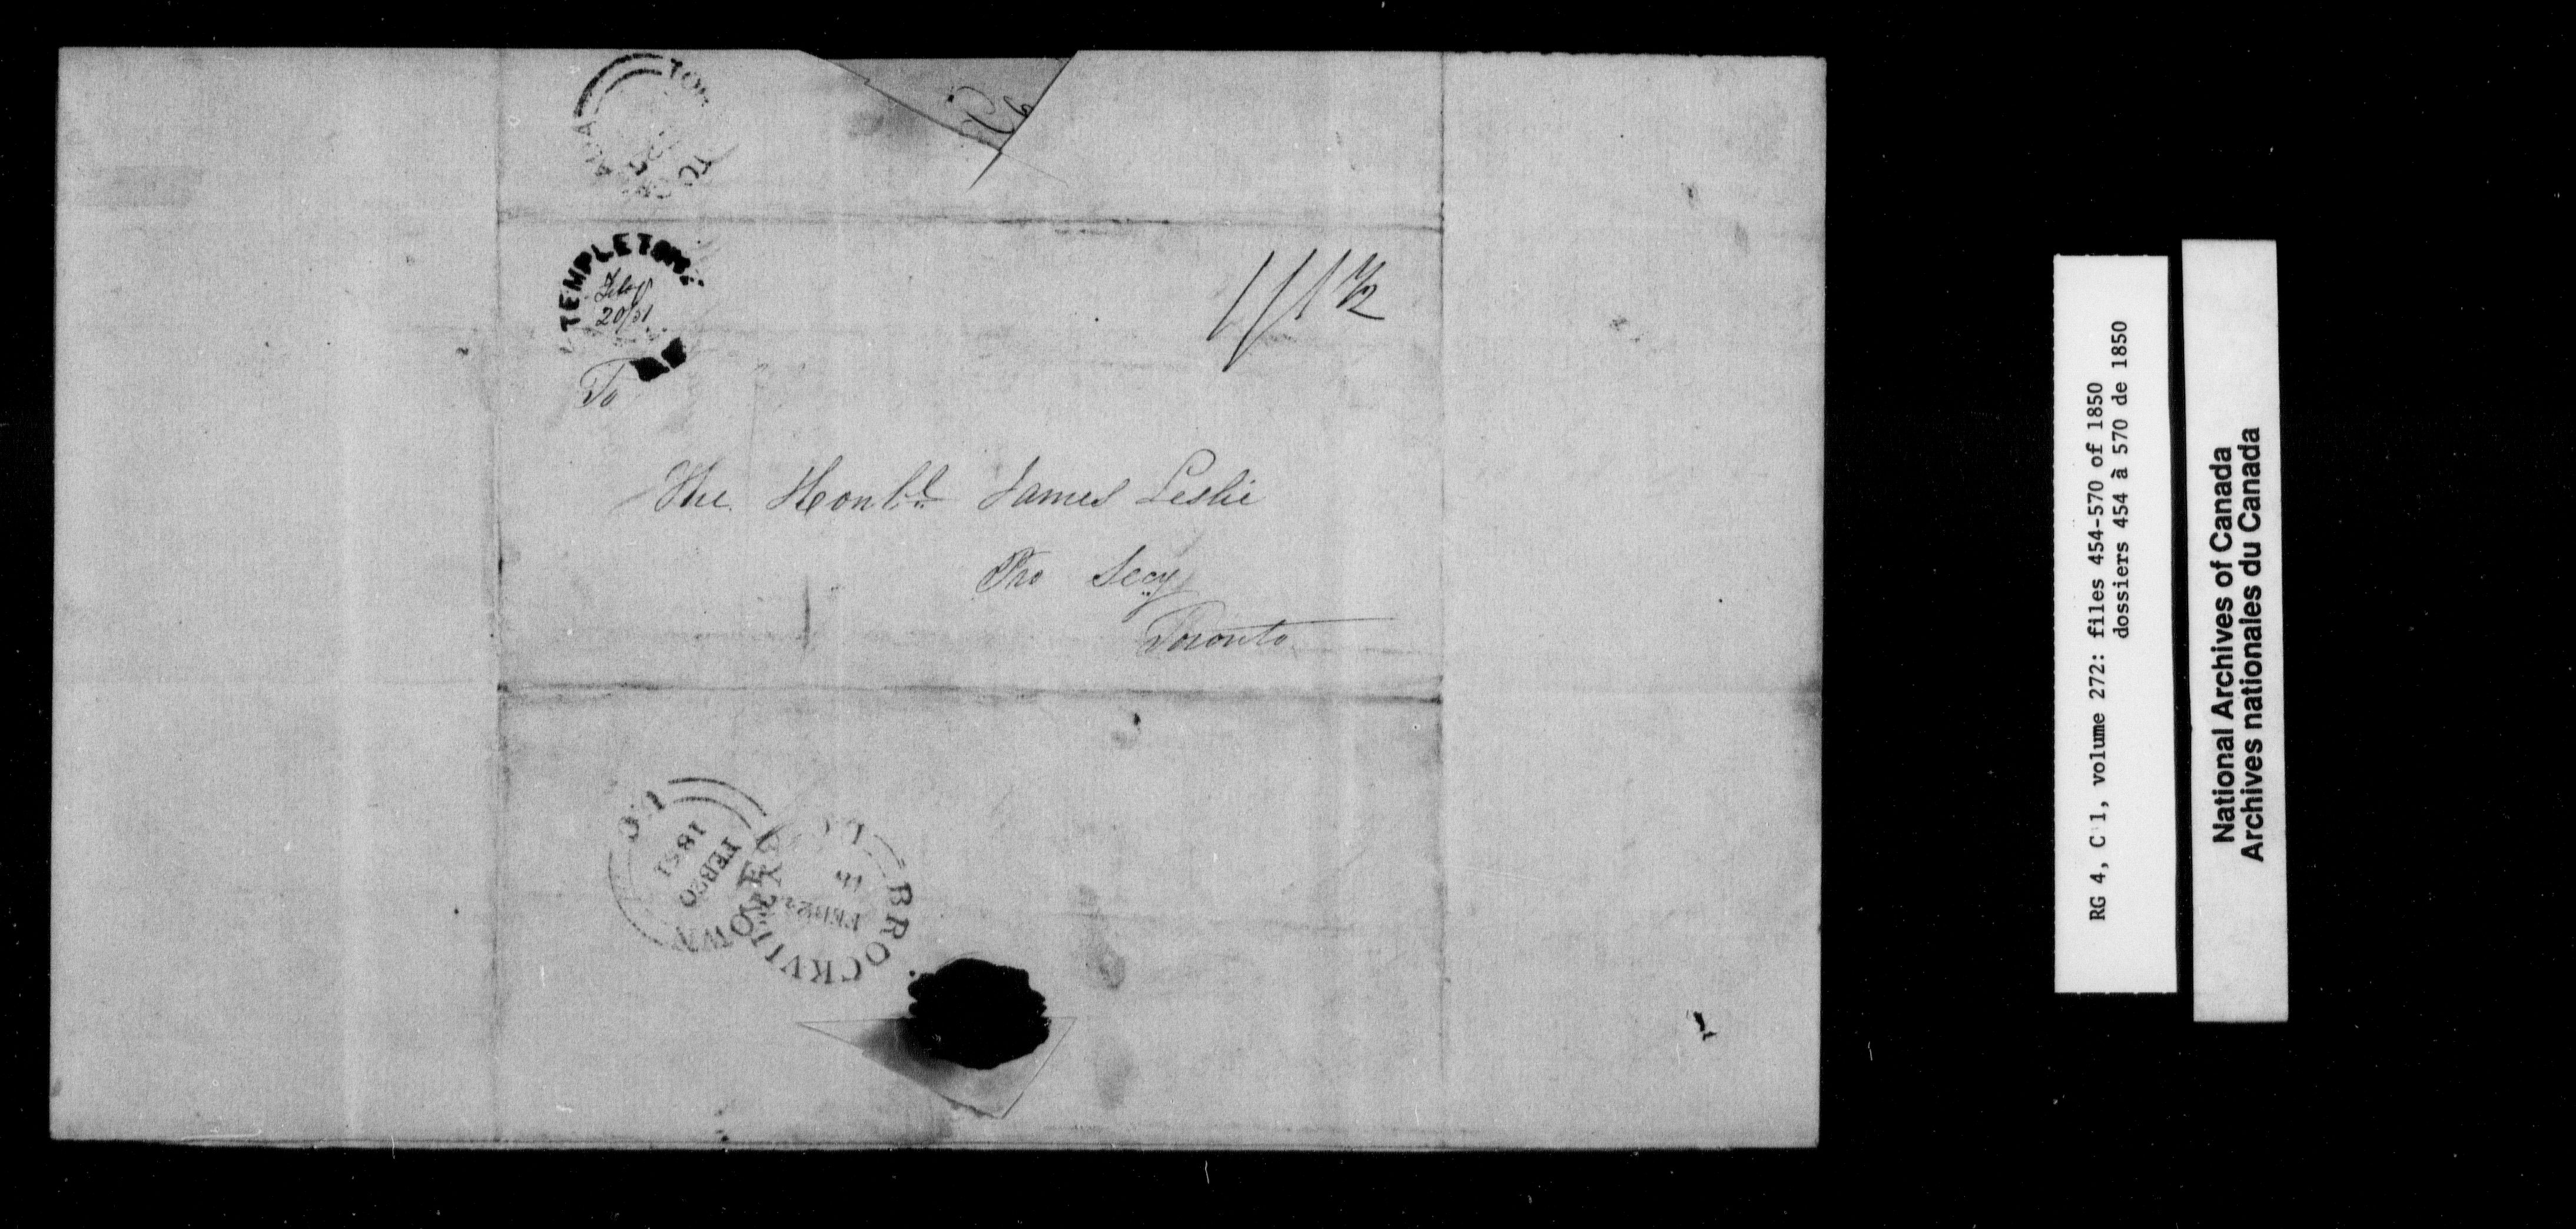 TEMPLETON
Feby
20/51
1/1 1/2
To
The Honble James Leslie
Pro Secy
Toronto
1851
FEB 20
BROCKVILLE
RG 4, C 1, volume 272: files 454-570 of 1850
dossiers 454 à 570 de 1850
National Archives of Canada
Archives nationales du Canada